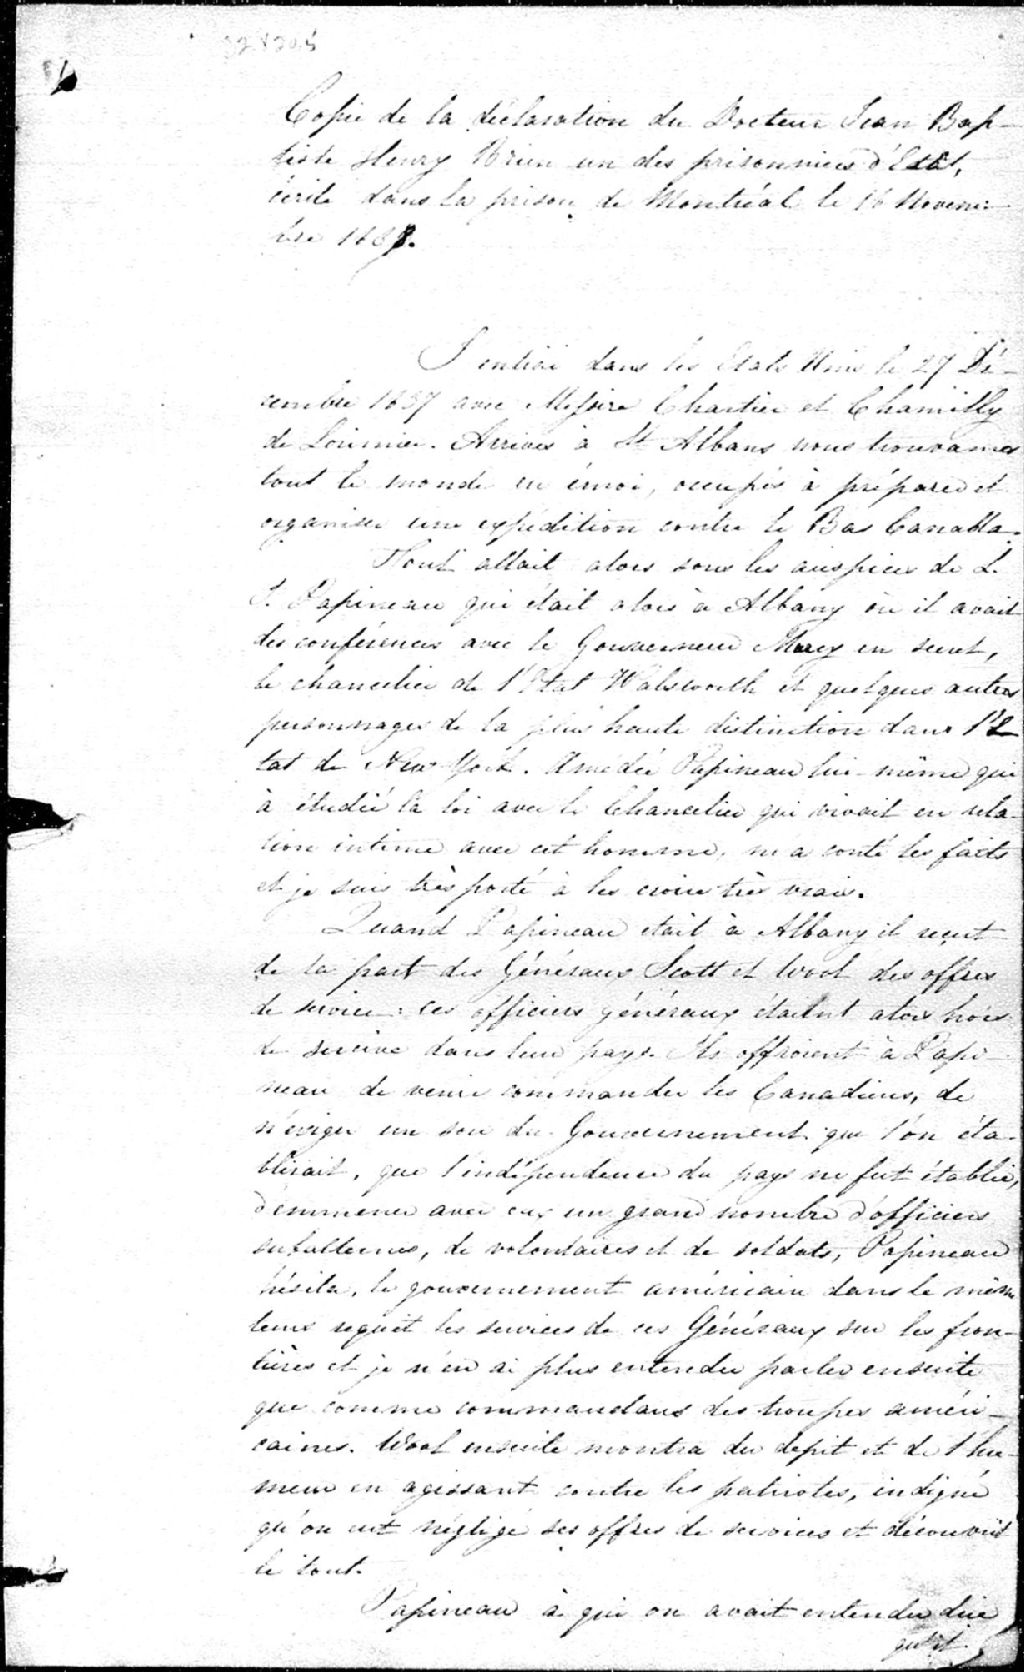 Copie de la déclaration du Docteur Jean Bap-
tiste Henry Brien un des prisonniers d'Etat,
écrite dans la prison de Montréal le 16 Novem-
bre 1838.
J'entrai dans les Etats Unis le 27 Dé-
cembre 1837 avec Messire Chartier et Chamilly
de Lorimier. Arrivés à St Albans nous trouvames
tout le monde en émoi, occupés à préparer et
organiser une expédition contre le Bas Canada.
Tout allait alors sous les auspices de L.
J. Papineau qui était alors à Albany où il avait
des conférences avec le Gouverneur Marcy en secret,
le chancelier de l'Etat Walsworth et quelques autres
personnages de la plus haute distinction dans l'E
tat de New York. Amédée Papineau lui-même qui
à étudié la loi avec le Chancelier qui vivait en rela-
tion intime avec cet homme, m'a conté les faits
et je suis très porté à les croire très vrais.
Quand Papineau était à Albany il reçut
de la part des Généraux Scott et Wool des offres
de service : ces officiers généraux étaient alors hors
de service dans leur pays. Ils offroient à Papi-
neau de venir commander les Canadiens, de
n'exiger un sou du Gouvernement que l'on éta-
blirait, que l'indépendance du pays ne fut établie,
d'emmener avec eux un grand nombre d'officiers
subalternes, de volontaires et de soldats, Papineau
hésita, le gouvernement américain dans le même
tems requit les services de ces Généraux sur les fron-
tières et je n'en ai plus entendu parler ensuite
que comme commandans des troupes améri-
caines. Wool ensuite montra du depit et de l'hu-
meur en agissant contre les patriotes, indigné
qu'on eut négligé ses offres de services et découvrit
le tout.
Papineau à qui on avait entendu dire
qu'il